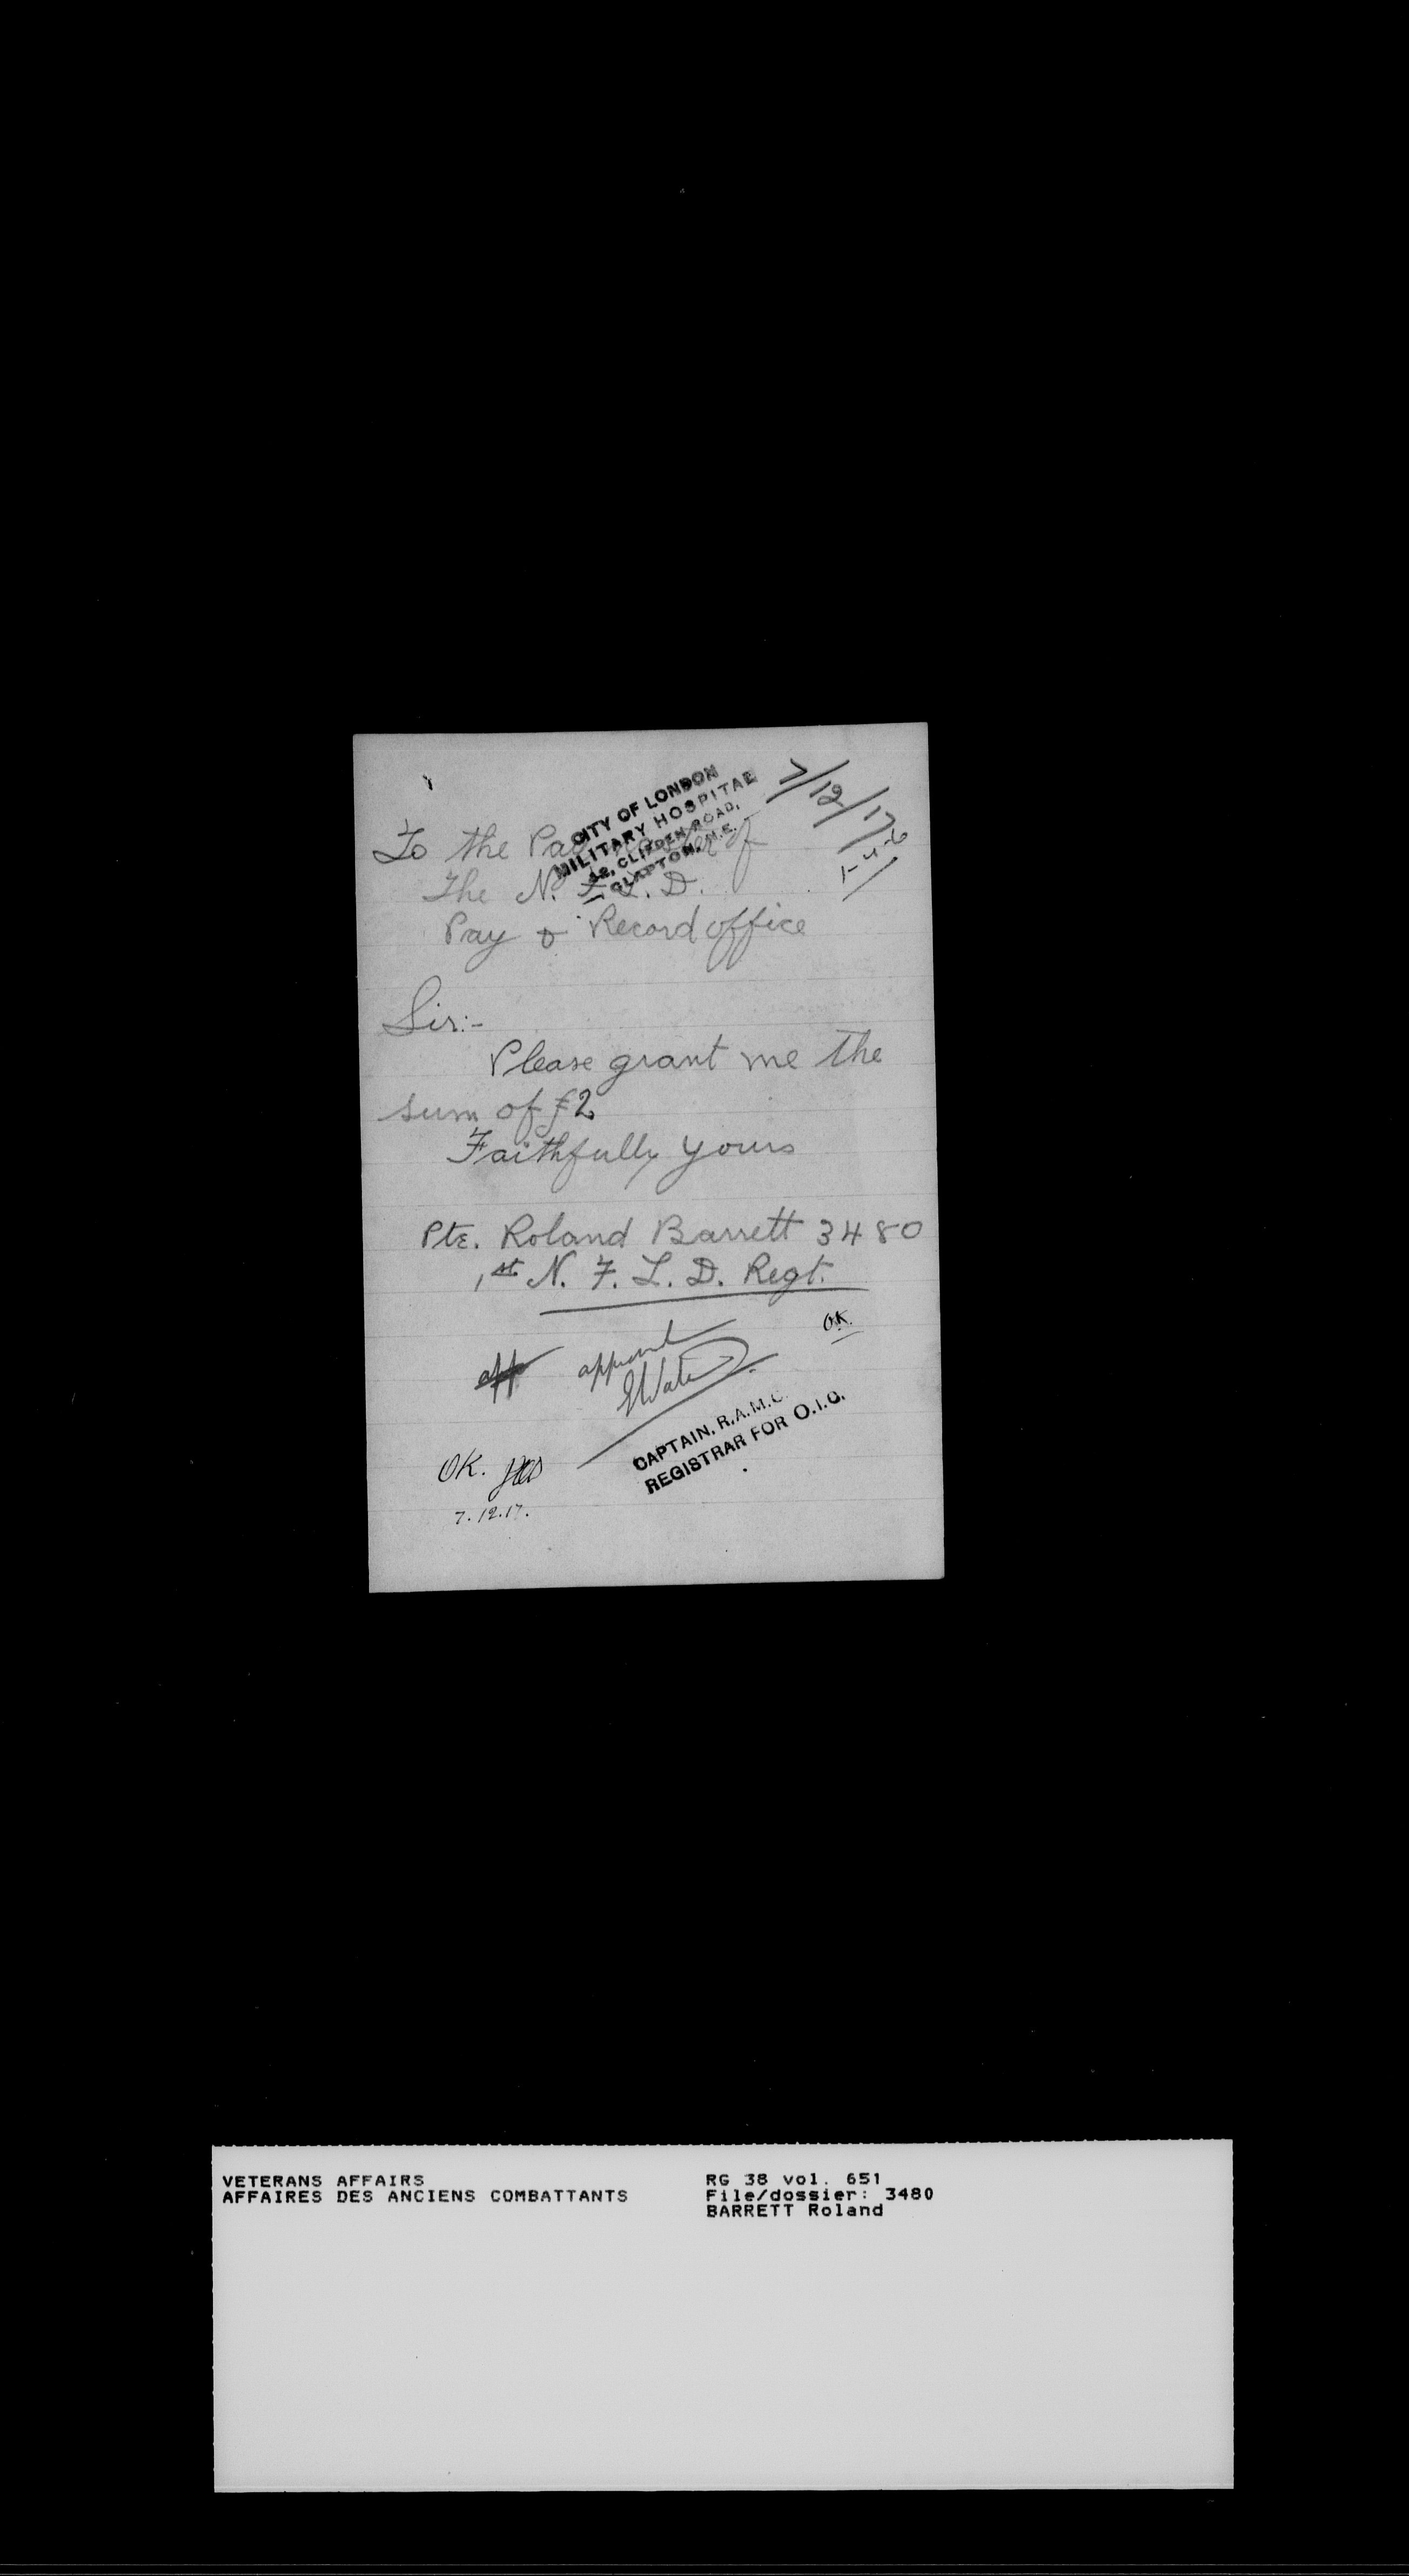 CITY OF LONDON
MILITARY HOSPITAL
42, CLIFDEN ROAD,
CLAPTON, N.E.
7/12/17
To the Paymaster of
The N. F. L. D.
Pay & Record office
Sir:-
Please grant me the
sum of £2
Faithfully yours
Pte. Roland Barrett 3480
1st N. F. L. D. Regt.
OK.
app approved
CAPTAIN, R.A.M.C.
REGISTRAR FOR O.I.C.
OK.
7.12.17.
VETERANS AFFAIRS
AFFAIRES DES ANCIENS COMBATTANTS
RG 38 vol. 651
File/dossier: 3480
BARRETT Roland